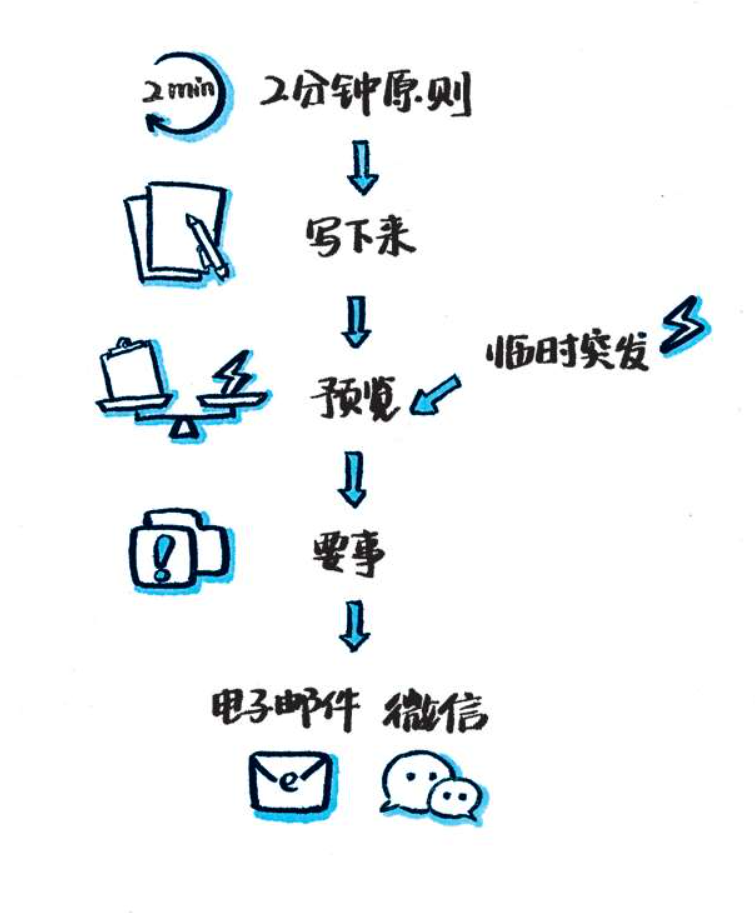 2min 2分钟原则
写下来
临时突发
预览
要事
电子邮件 微信
e